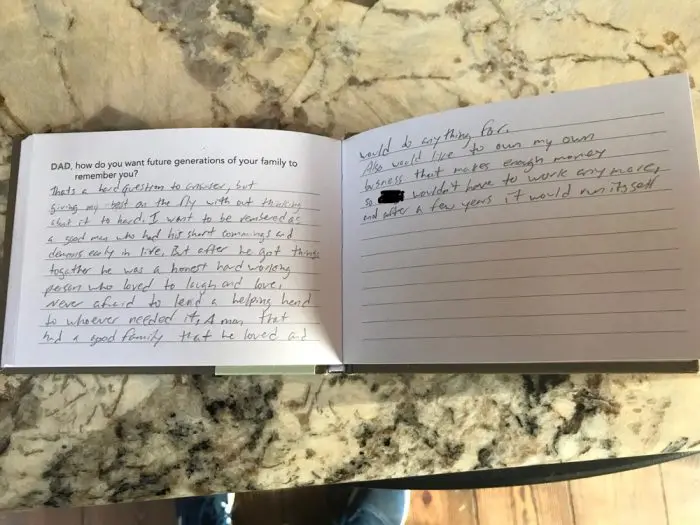 DAD, how do you want future generations of your family to
remember you?
Thats a hard question to answer, but
giving my best on the fly with out thinking
about it to hard. I want to be rembered as
a good man who had his short commings and
demons early in life, But after he got things
together he was a honest hard working
person who loved to laugh and love,
Never afraid to lend a helping hand
to whoever needed it, A man that
had a good family that he loved and
would do any thing for.
Also would like to own my own
buisness that makes enough money
so wouldn't have to work any more,
and after a few years it would run itself